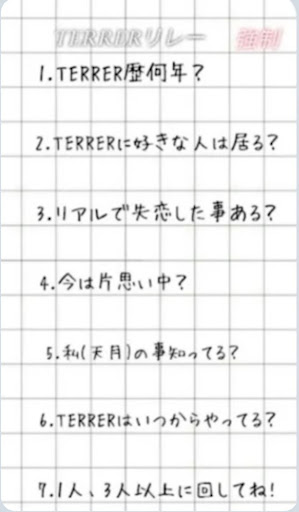 TERRERリレー 強制
1.TERRER歴何年?
2.TERRERに好きな人は居る?
3.リアルで失恋した事ある?
4.今は片思い中?
5.私(天月)の事知ってる?
6.TERRERはいつからやってる?
7.1人、3人以上に回してね!